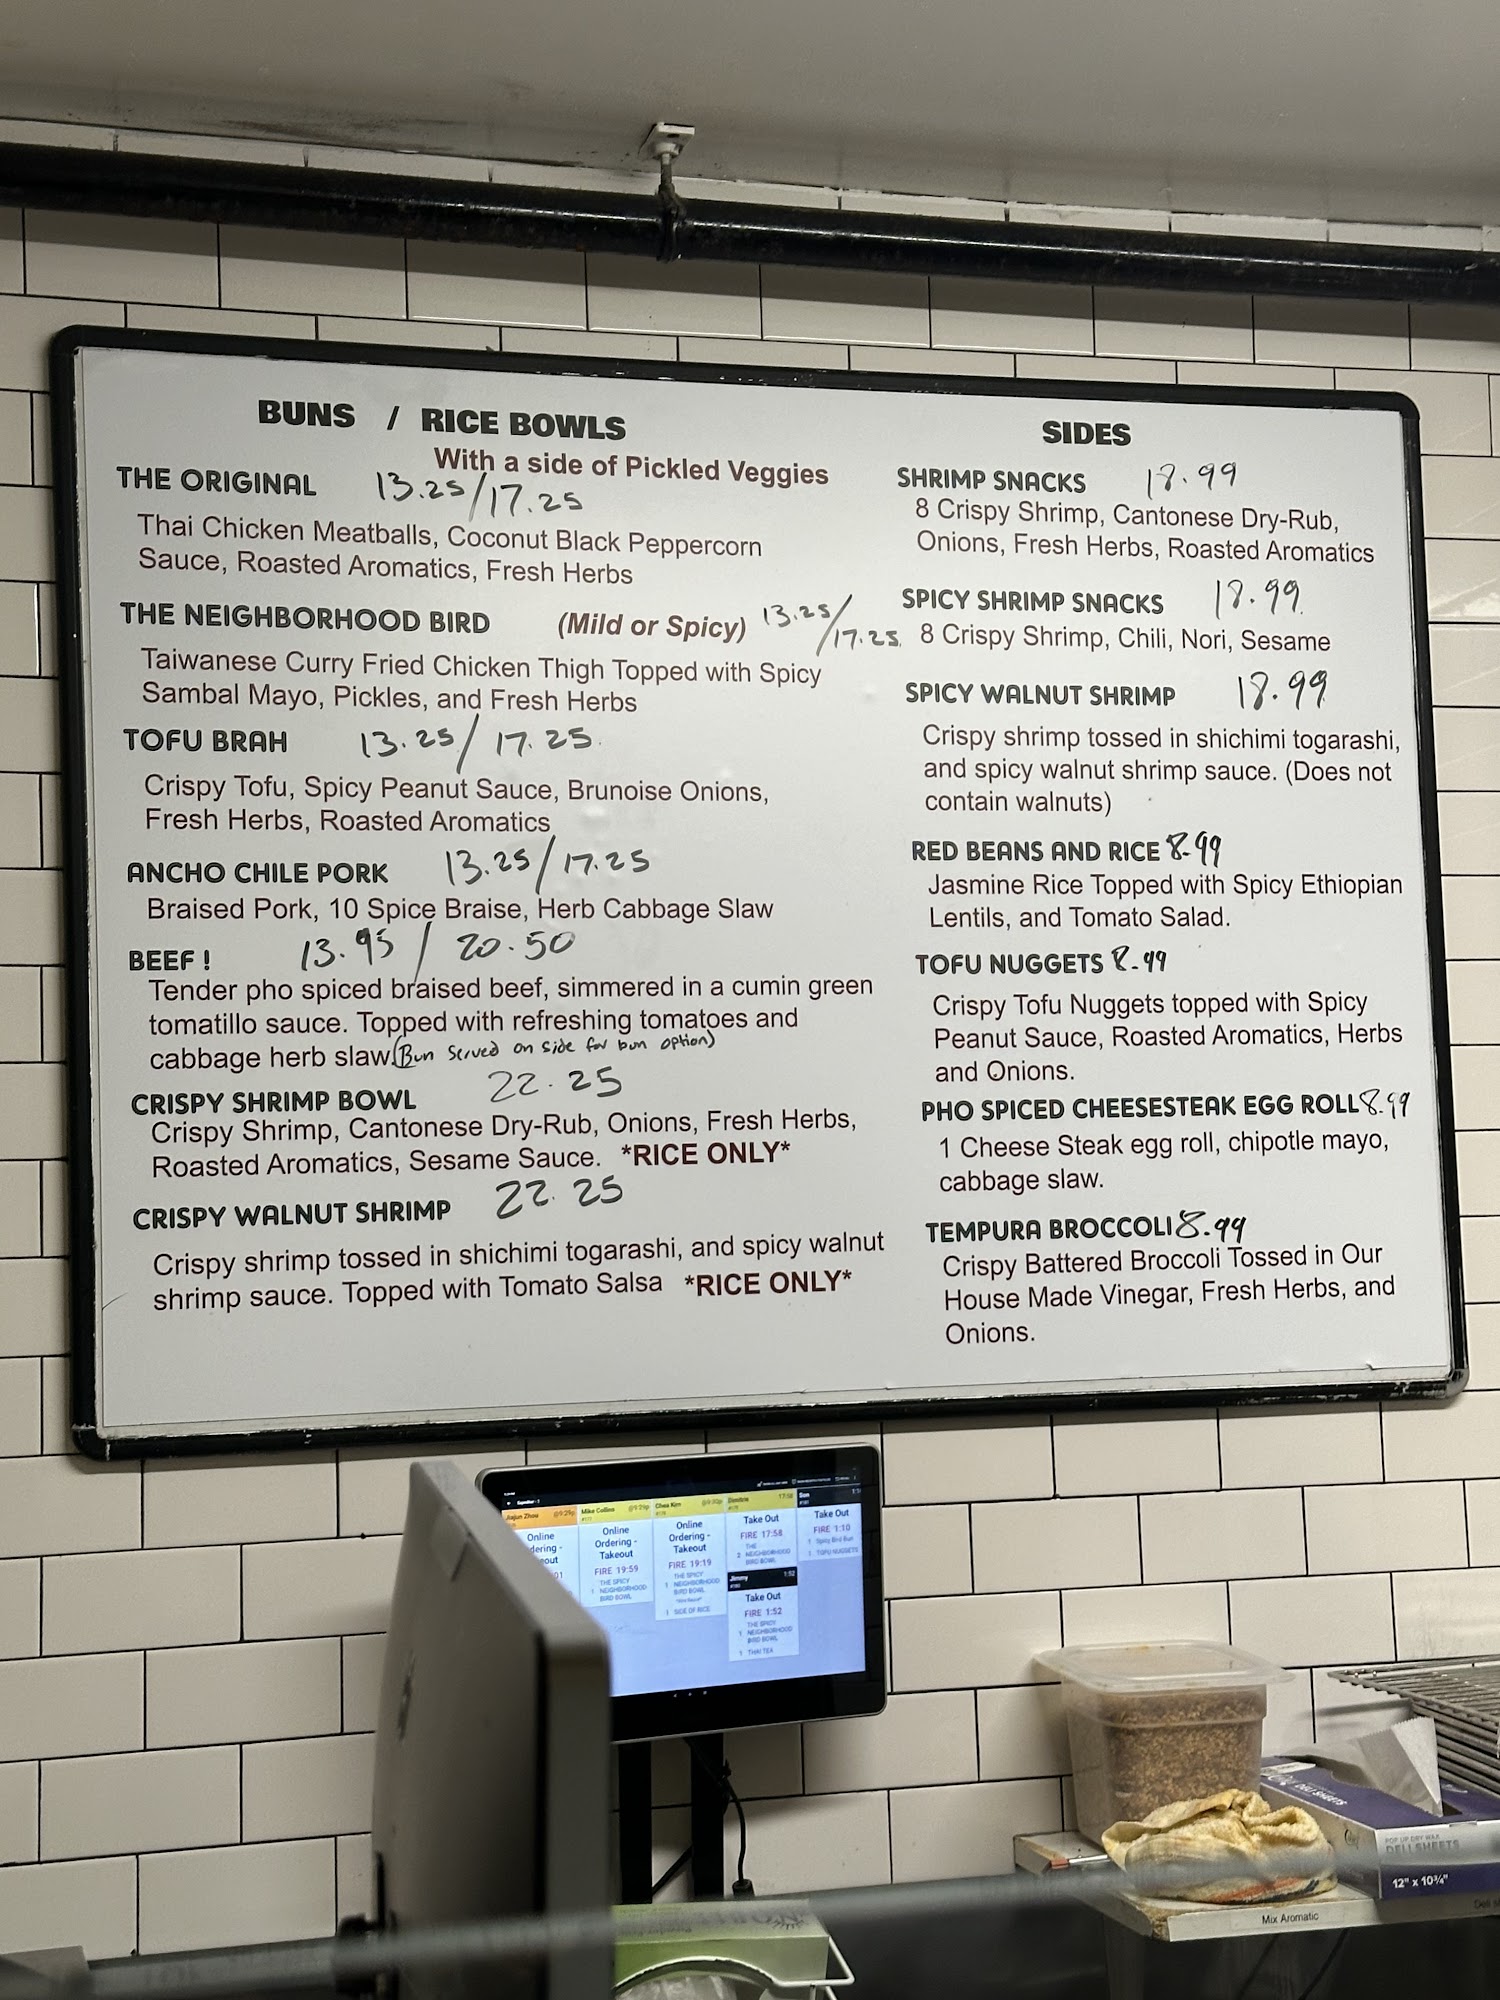 BUNS / RICE BOWLS
With a side of Pickled Veggies
THE ORIGINAL 13.25/17.25
Thai Chicken Meatballs, Coconut Black Peppercorn
Sauce, Roasted Aromatics, Fresh Herbs
THE NEIGHBORHOOD BIRD (Mild or Spicy) 13.25/17.25
Taiwanese Curry Fried Chicken Thigh Topped with Spicy
Sambal Mayo, Pickles, and Fresh Herbs
TOFU BRAH 13.25/17.25
Crispy Tofu, Spicy Peanut Sauce, Brunoise Onions,
Fresh Herbs, Roasted Aromatics
ANCHO CHILE PORK 13.25/17.25
Braised Pork, 10 Spice Braise, Herb Cabbage Slaw
BEEF! 13.95/20.50
Tender pho spiced braised beef, simmered in a cumin green
tomatillo sauce. Topped with refreshing tomatoes and
cabbage herb slaw. (Bun Served on side for bun option)
CRISPY SHRIMP BOWL 22.25
Crispy Shrimp, Cantonese Dry-Rub, Onions, Fresh Herbs,
Roasted Aromatics, Sesame Sauce. *RICE ONLY*
CRISPY WALNUT SHRIMP 22.25
Crispy shrimp tossed in shichimi togarashi, and spicy walnut
shrimp sauce. Topped with Tomato Salsa *RICE ONLY*
SIDES
SHRIMP SNACKS 18.99
8 Crispy Shrimp, Cantonese Dry-Rub,
Onions, Fresh Herbs, Roasted Aromatics
SPICY SHRIMP SNACKS 18.99
8 Crispy Shrimp, Chili, Nori, Sesame
SPICY WALNUT SHRIMP 18.99
Crispy shrimp tossed in shichimi togarashi,
and spicy walnut shrimp sauce. (Does not
contain walnuts)
RED BEANS AND RICE 8.99
Jasmine Rice Topped with Spicy Ethiopian
Lentils, and Tomato Salad.
TOFU NUGGETS 8.99
Crispy Tofu Nuggets topped with Spicy
Peanut Sauce, Roasted Aromatics, Herbs
and Onions.
PHO SPICED CHEESESTEAK EGG ROLL 8.99
1 Cheese Steak egg roll, chipotle mayo,
cabbage slaw.
TEMPURA BROCCOLI 8.99
Crispy Battered Broccoli Tossed in Our
House Made Vinegar, Fresh Herbs, and
Onions.
Jiajun Zhou @9:29p
Online
Mike Collins @9:29p
Online
Ordering -
Takeout
FIRE 19:59
THE SPICY
1 NEIGHBORHOOD
BIRD BOWL
Chea Kim
Online
Ordering -
Takeout
FIRE 19:19
THE SPICY
1 NEIGHBORHOOD
BIRD BOWL
1 SIDE OF RICE
Dimitris 17:58
Take Out
FIRE 17:58
THE
2 NEIGHBORHOOD
BIRD BOWL
Jimmy 1:52
Take Out
FIRE 1:52
THE SPICY
1 NEIGHBORHOOD
BIRD BOWL
1 THAI TEA
Take Out
FIRE 1:10
1 Spicy Bird Bun
1 TOFU NUGGETS
DELI SHEETS
POP UP DRY WAX
DELI SHEETS
12" x 10¾"
Mix Aromatic